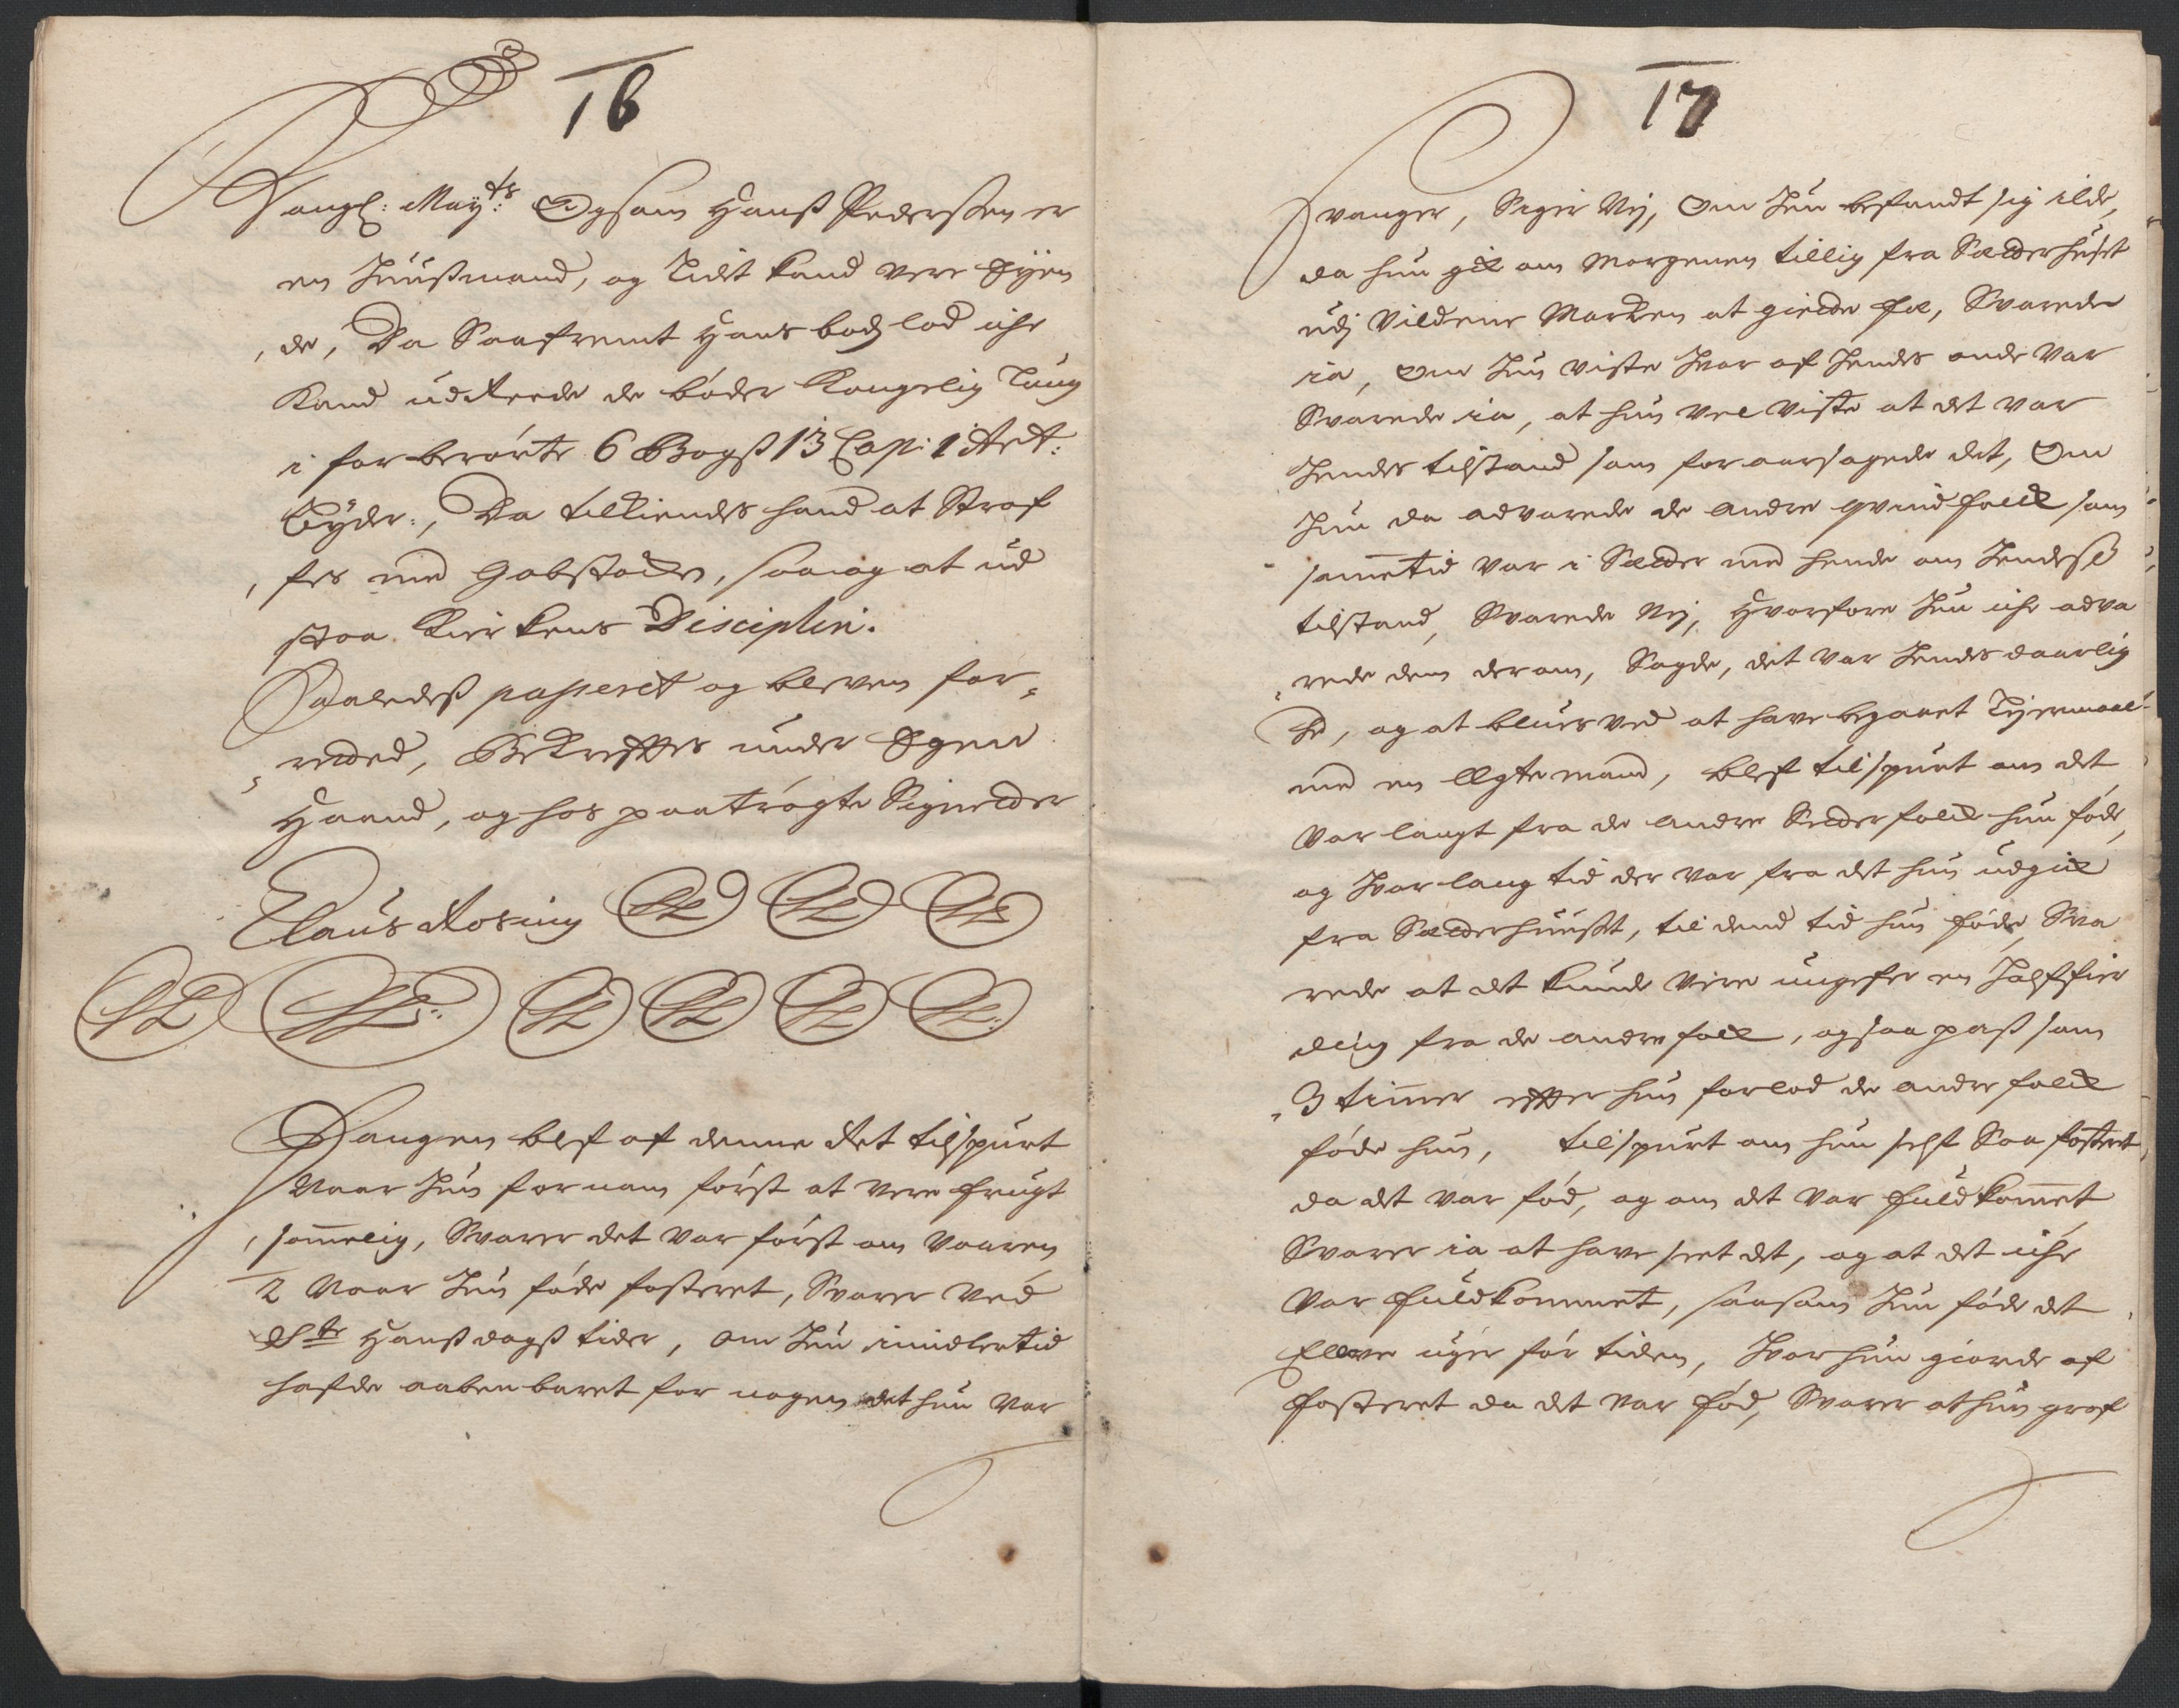 16
Kongl: Mayts: Og som Hanß Pederßen er
en Huußmand, og Lidt kand vere Eyen
, de, Da Saafremt Hans bodslod iche
kand udreede de bøder Kongelig Laug
i forberørte 6 Bogß 13 Cap: 1 Art:
byder:, Da tilkiendes hand at Straf
, fes med Gabstocken, saa og at ud
staa Kirkens Disciplin.
Saaledeß passeret og bleven for¸
¸ rettet, Bekreffter under Egen
Haand, og hos paatrøgte Signetter
Claus Rosing LS LS LS
LS LS: LS LS LS LS:
Fangen blef af denne Ret tilspurt
Naar hun fornam først at vere frugt
, sommelig, Svarer det var først om Vaaren
2 Naar hun føde fosteret, Svarer ved
Ste Hanßdagß tider, Om hun imidlertid
hafde aabenbaret for nogen det hun Var
17
Svanger, Siger Nej, Om hun befandt sig ilde,
da hun gik om Morgenen tillig fra Sætterhuset
udj Vildene Marken at giette fæ, Svarede
ia, Om hun viste hvor af hendes onde Var
Svarede ia, at hun vel viste at det var
hendes tilstand som foraarsagede det, Om
hun da advarede de andre qvindfolck som
sammetid var i Sætter med hende om hendeß
tilstand, Svarede Nej, Hvorfore hun iche adva
¸ rede dem derom, Sagde, det var hendes daarlig
hed, og at blues ved at have begaaet Lejermaal
med en Ægtemand, blef tilspurt om det
Var langt fra de andre Setterfolck hun føde,
og hvor lang tid der var fra det hun udgik
fra Sætterhuußet, til dend tid hun føde, Sva
rede at det kunde vere ungefer en halffier
ding fra de andre folck, og saa paß som
¸ 3 timer effter hun forlod de andre folck
føde hun, tilspurt om hun self Saa fosteret
da det var fød, og om det var fuldkommet
Svarer ia at have seet det, og at det iche
Var fuldkommet, saasom hun føde det
Elleve uger før tiden, hvor hun giorde af
fosteret da det var fød, Svarer at hun grof